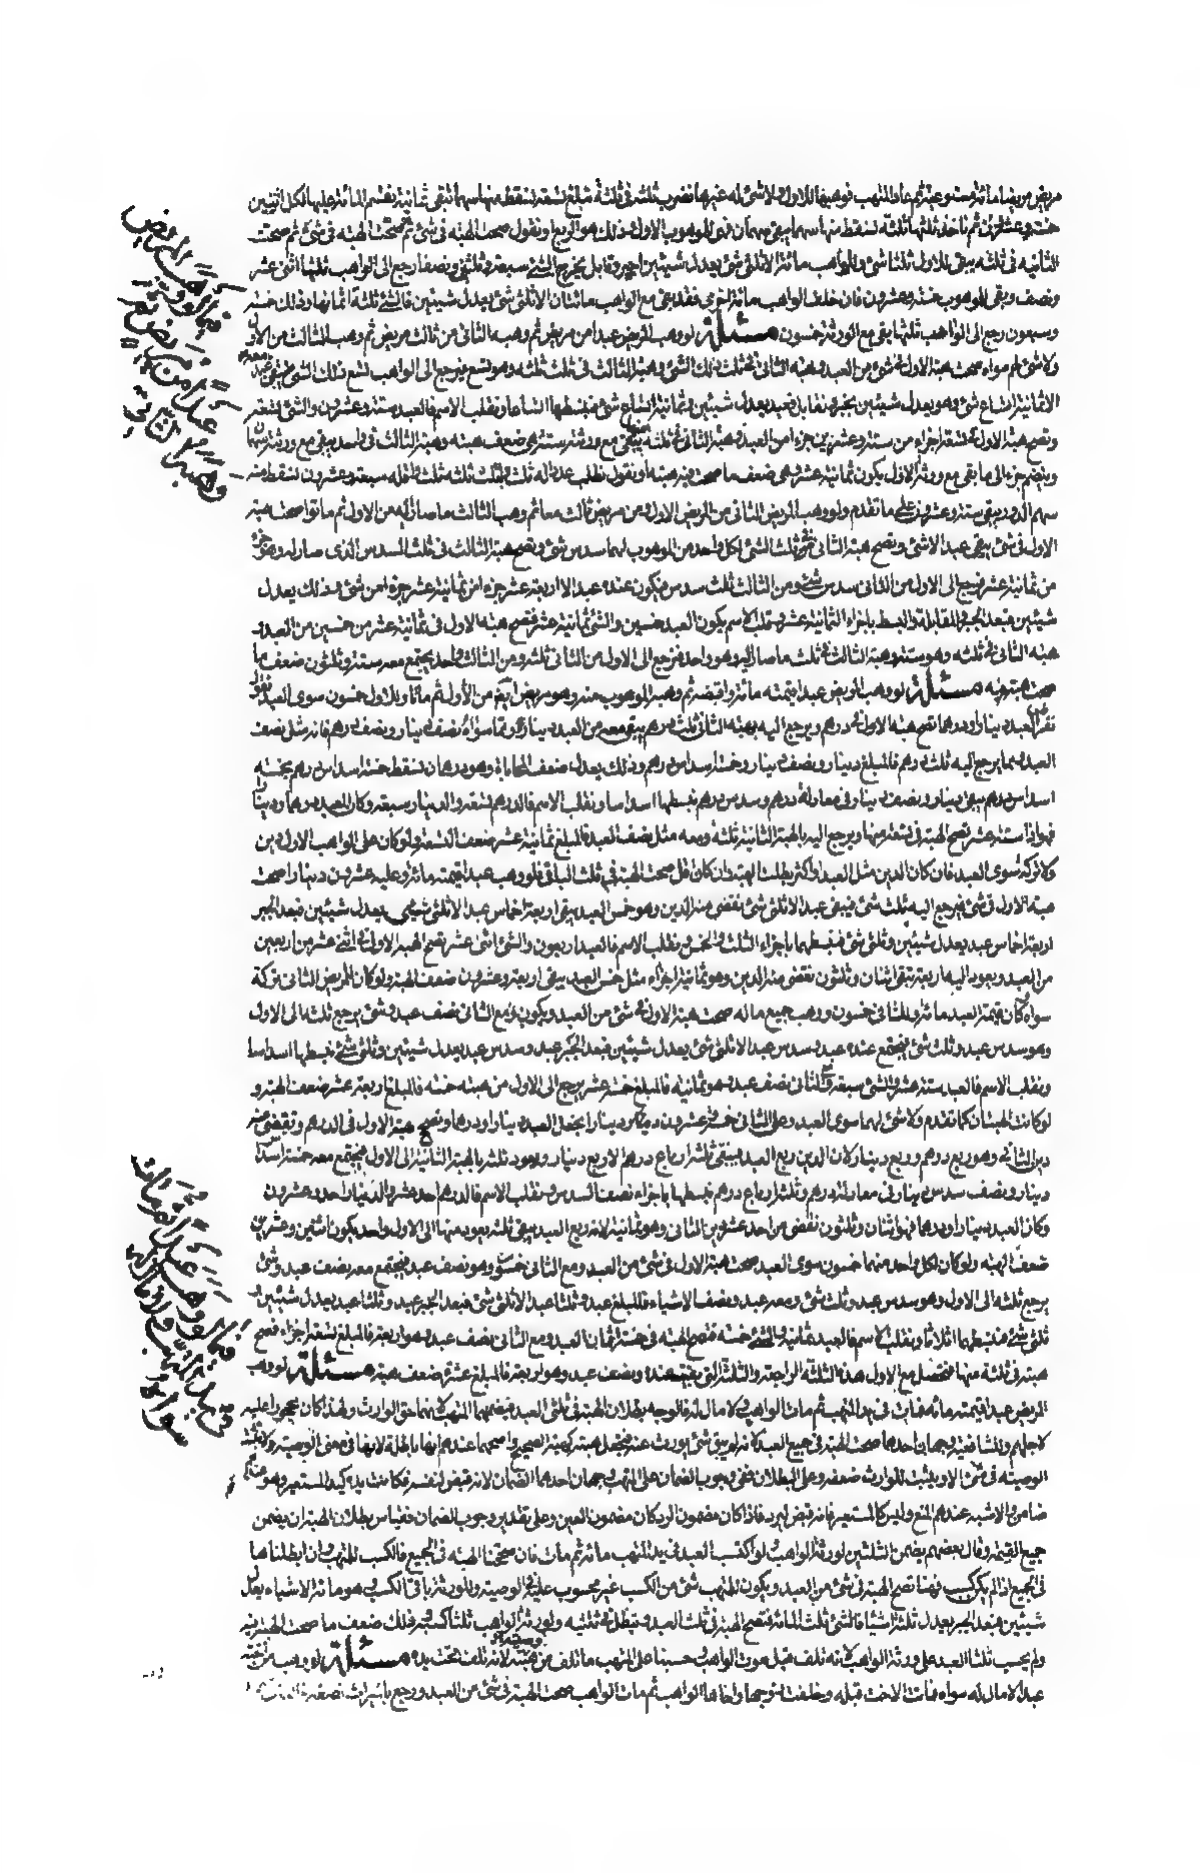 مريض من مريضا مائة ثم عاد المتهب فوهبها للاول ولا شئ له غيرها فضرب ثلثه في ثلثة مبلغ تسعة نسقط منها سهما تبقى ثمانية نقسم المائة عليها لكل اثنين
خمسة وعشرون ثم ناخذ ثلثها ثلثة نسقط منها سهما يبقى سهمان فهى للموهوب الاول فذلك هو الربع او نقول صحت الهبة فى شئ ثم صحت الهبة فى شئ ثم صحت
الثانيه فى ثلثه يبقى للاول ثلثا شئ وللواهب مائة الا ثلثى شئ يعدل شيئين اجبر وقابل يخرج الشئ سبعة وثلثين ونصفا رجع الى الواهب ثلثها اثنى عشر
ونصف وبقى للموهوب خمسة وعشرون فان خلف الواهب مائة اخرى فقد بقى مع الواهب مائتان الا ثلثى شئ يعدل شيئين فالشئ ثلثة اثمانها وذلك خمسة
وسبعون رجع الى الواهب ثلثها بقى مع الورثة خمسون مسئلة لو وهب المريض عبدا من مريض ثم وهبه الثانى من ثالث مريض ثم وهب الثالث من الاول
ولا شئ لهم سواه صحت هبة الاول فى شئ من العبد وهبة الثانى فى ثلث ذلك الشئ وهبة الثالث فى ثلث ثلثه وهو تسع فيرجع الى الواهب تسع ذلك الشئ
الا ثمانية اتساع شئ وهو يعدل شيئين نجبر ونقابل فعبد يعدل شيئين وثمانية اتساع شئ فنبسطها اتساعا ونقلب الاسم فالعبد ستة وعشرون والشئ تسعة
وتصح هبة الاول فى تسعة اجزاء من ستة وعشرين جزءا من العبد وهبة الثانى فى ثلثه يبقى مع ورثته ستة هى ضعف هبته وهبة الثالث فى واحد يبقى مع ورثته سهمان
وينضم جزء الى ما بقى مع ورثة الاول يكون ثمانية عشر هى ضعف ما صحت فيه هبته او نقول نطلب عددا له ثلث ولثلثه ثلث واقله سبعة وعشرون نسقط منه
سهم الدور يبقى ستة وعشرون على ما تقدم ولو وهب المريض الثانى من المريض الاول ومن مريض ثالث معا ثم وهب الثالث ما صار اليه من الاول ثم ماتوا صحت هبة
الاول فى شئ يبقى عبد الا شئ وتصح هبة الثانى فى ثلث الشئ لكل واحد من الموهوب لهما سدس شئ وتصح هبة الثالث فى ثلث السدس الذى صار له وهو جزء
من ثمانية عشر فيرجع الى الاول من الثانى سدس شئ ومن الثالث ثلث سدس فيكون عنده عبد الا اربعة عشر جزءا من ثمانية عشر جزءا من شئ وذلك يعدل
شيئين فبعد الجبر والمقابلة والبسط باجزاء الثمانية عشر وقلب الاسم يكون العبد خمسين والشئ ثمانية عشر فتصح هبة الاول فى ثمانية عشر من خمسين من العبد و
هبه الثانى فى ثلثه وهو ستة وهبة الثالث فى ثلث ما صار اليه وهو واحد فيرجع الى الاول من الثانى ثلثه ومن الثالث واحد يجتمع معه ستة وثلثون ضعف ما
صحت هبته فيه مسئلة لو وهب المريض عبدا قيمته مائة واقبضه ثم وهبه الموهوب منه وهو مريض ايضا من الاول ثم ماتا وللاول خمسون سوى العبد فنقول
نفرض العبد دينارا ودرهما تصح هبة الاول فى درهم ويرجع اليه بهبة الثانى ثلث درهم يبقى معه من العبد دينار وما سواه نصف دينار ونصف درهم فانه مثل نصف
العبد ومما يرجع اليه ثلث درهم فالمبلغ دينار ونصف دينار وخمسة اسداس درهم وذلك يعدل ضعف المحاباة وهو درهمان نسقط خمسة اسداس درهم بخمسة
اسداس درهم يبقى دينار ونصف دينار فى معادلة درهم وسدس درهم نبسطها اسداسا ونقلب الاسم فالدرهم تسعة والدينار سبعة وكان العبد درهما ودينارا
فهو اذا ستة عشر تصح الهبة فى تسعة منها ويرجع اليه بالهبة الثانية ثلثة ومعه مثل نصف العبد فالمبلغ ثمانية عشر ضعف التسعة ولو كان على الواهب الاول دين
ولا تركة سوى العبد فان كان الدين مثل العبد او اكثر بطلت الهبة وان كان اقل صحت الهبة فى ثلث الباقى فلو وهب عبدا قيمته مائة وعليه عشرون دينارا صحت
هبة الاول فى شئ فيرجع اليه ثلث شئ فيبقى عبد الا ثلثى شئ نقضى منه الدين وهو خمس العبد يبقى اربعة اخماس عبد الا ثلثى شئ يعدل شيئين فبعد الجبر
اربعة اخماس عبد يعدل شيئين وثلثى شئ فنبسطهما باجزاء الثلث والخمس ونقلب الاسم فالعبد اربعون والشئ اثنى عشر تصح الهبة الاولى فى اثنى عشر من اربعين
من العبد ويعود اليه اربعة تبقى اثنان وثلثون نقضى منه الدين وهو ثمانية اجزاء مثل خمس العبد يبقى اربعة وعشرون ضعف الهبة ولو كان للمريض الثانى تركة
سواه كان قيمة العبد مائة وللثانى خمسون ووهب جميع ماله صحت هبة الاول فى شئ من العبد ويكون مع الثانى نصف عبد وشئ يرجع ثلثه الى الاول
وهو سدس عبد وثلث شئ فيجتمع عنده عبد وسدس عبد الا ثلثى شئ يعدل شيئين فبعد الجبر عبد وسدس عبد يعدل شيئين وثلثى شئ نبسطها اسداسا
ونقلب الاسم فالعبد ستة عشر والشئ سبعة وللثانى نصف عبد وهو ثمانية فالمبلغ خمسة عشر يرجع الى الاول من هبته خمسة فالمبلغ اربعة عشر ضعف الهبة و
لو كانت الهبتان كما تقدم ولا شئ لهما سوى العبد وعلى الثانى خمسة وعشرون دينارا نجعل العبد دينارا ودرهما وتصح هبة الاول فى الدرهم ونقضى منه
دين الثانى وهو ربع درهم وربع دينار لان الدين ربع العبد يبقى ثلثة ارباع درهم الا ربع دينار ويعود ثلثه بالهبة الثانية الى الاول فيجتمع معه خمسة اسداس
دينار ونصف سدس دينار فى معادلة درهم وثلثة ارباع درهم فنبسطها باجزاء نصف السدس ونقلب الاسم فالدرهم احد عشر والدينار احد وعشرون
وكان العبد دينارا ودرهما فهو اثنان وثلثون نقضى من احد عشر دين الثانى وهو ثمانية لانه ربع العبد يبقى ثلثه يعود منها الى الاول واحد يكون اثنين وعشرين
ضعف الهبة ولو كان لكل واحد منهما خمسون سوى العبد صحت هبة الاول فى شئ من العبد ومع الثانى خمسون وهو نصف عبد فيجتمع معه نصف عبد وشئ
يرجع ثلثه الى الاول وهو سدس عبد وثلث شئ ومعه عبد ونصف الا شيئا فالمبلغ عبد وثلثا عبد الا ثلثى شئ فبعد الجبر عبد وثلثا عبد يعدل شيئين و
ثلثى شئ فنبسطهما اثلاثا ونقلب الاسم فالعبد ثمانية والشئ خمسة فتصح الهبة فى خمسة اثمان العبد ومع الثانى نصف عبد وهو اربعة فالمبلغ تسعة اجزاء فتصح
هبته فى ثلثة منها فتحصل مع الاول هذه الثلثة الراجعة والثلثة التى بقيت عنده ونصف عبد وهو اربعة فالمبلغ عشرة ضعف هبته مسئلة لو وهب
المريض عبدا قيمته مائة فمات فى يد المتهب ثم مات الواهب ولا مال له فالوجه بطلان الهبة فى ثلثى العبد
لاجلهم وللشافعية وجهان احدهما صحت الهبة فى جميع العبد
الوصية فى شئ الا ويثبت للوارث ضعفه وعلى البطلان ففى وجوب الضمان على المتهب وجهان احدهما الضمان لانه قبض لنفسه فكانت يده كيد المستعير وهو
ضامن والاشبه عندهم المنع وليس كالمستعير فانه قبض ليرد فاذا كان مضمون الرد كان مضمون العين وعلى تقدير وجوب الضمان فقياس بطلان الهبة ان يضمن
جميع القيمة وقال بعضهم يضمن الثلثين لورثة الواهب ولو اكتسب العبد فى يد المتهب مائة ثم مات فان صححنا الهبة فى الجميع فالكسب للمتهب وان ابطلناها
فى الجميع اذا لم يكن كسب فهنا تصح الهبة فى شئ من العبد ويكون للمتهب شئ من الكسب غير محسوب عليه فى الوصية وللورثة باقى الكسب وهو مائة الا شيئا يعدل
شيئين فبعد الجبر يعدل ثلثة اشياء فالشئ ثلث المائة فتصح الهبة فى ثلث العبد وتبطل فى ثلثيه ولورثة الواهب ثلثا كسبه وذلك ضعف ما صحت الهبة فيه
ولم يحسب ثلثا العبد على ورثة الواهب لانه تلف قبل موت الواهب وحسبنا على المتهب ما تلف من وصيته لانه تلف تحت يده مسئلة لو وهب من اخته
عبدا لا مال له سواه فماتت الاخت قبله وخلفت زوجها واخاها الواهب ثم مات الواهب صحت الهبة فى شئ من العبد ورجع بالميراث نصفه
فيما لو وهب المريض
عبدا من مريض ثم
وهبه الثانى
فيما لو وهب عبدا ثم مات
قبل المتهب ولا مال له
سواه